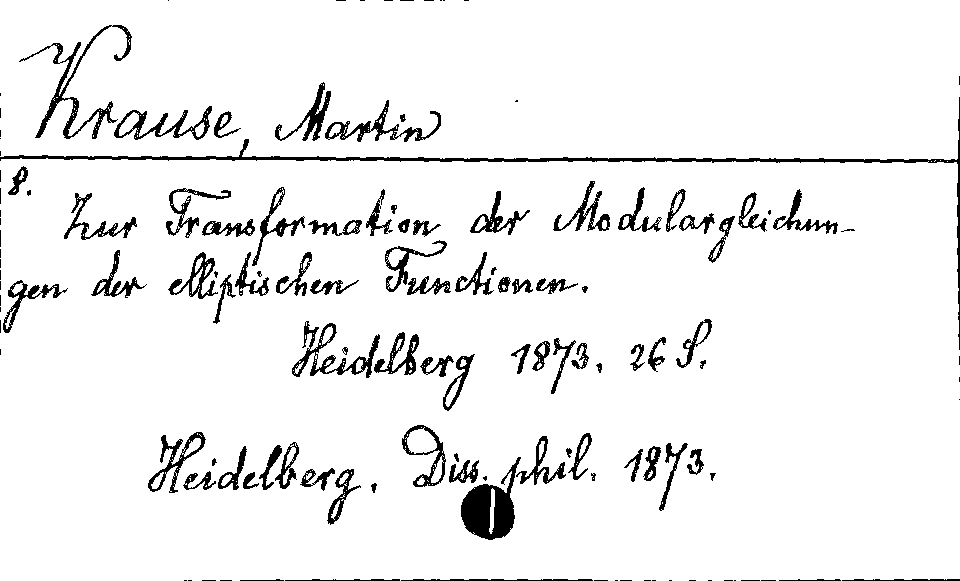 Krause, Martin
8.
Zur Transformation der Modulargleichun-
gen der elliptischen Functionen.
Heidelberg 1873. 26 S.
Heidelberg. Diss. phil. 1873.